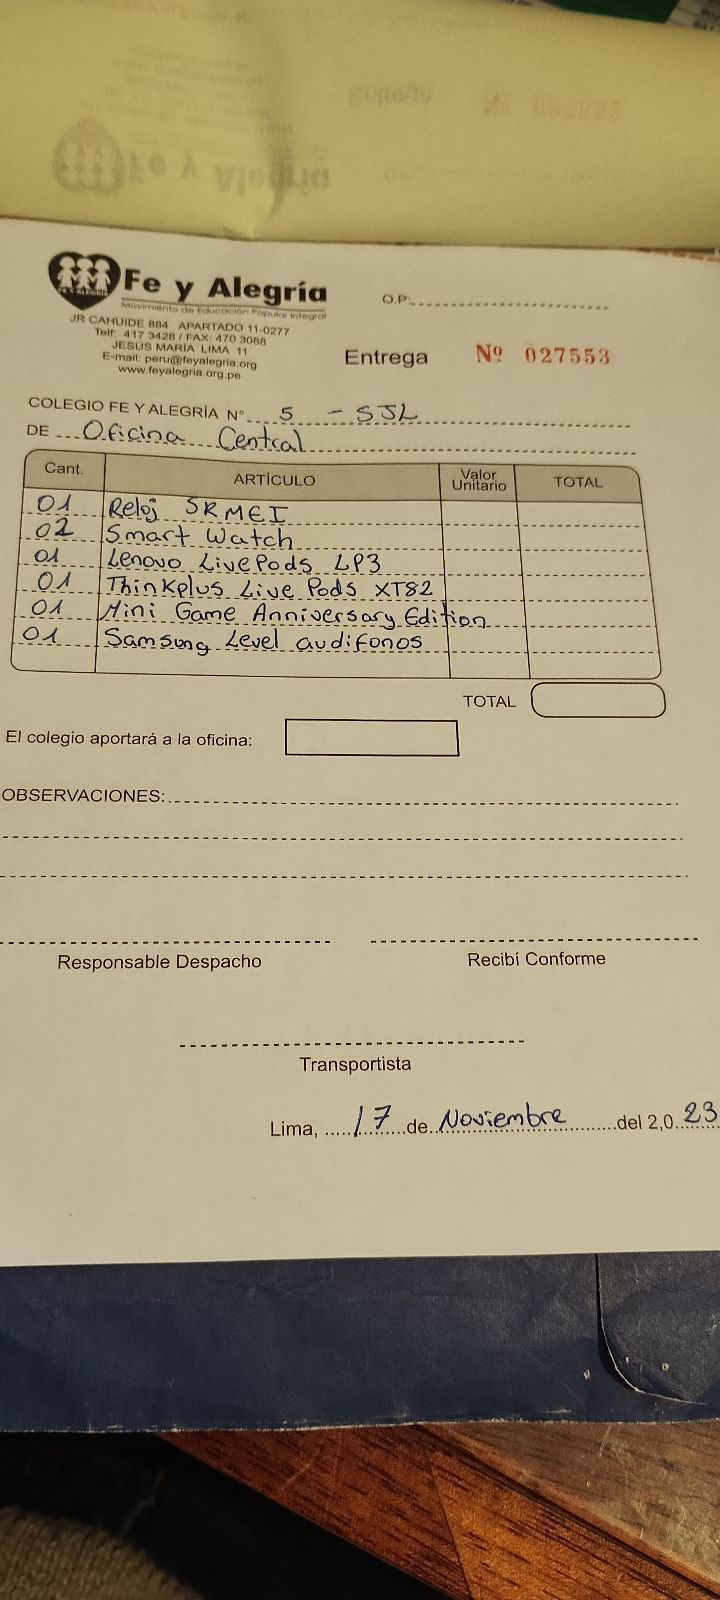 Fe y Alegría
Movimiento de Educación Popular Integral
JR CAHUIDE 884 APARTADO 11-0277
Telf: 417 3428 / FAX: 470 3088
JESÚS MARÍA LIMA 11
E-mail: peru@feyalegria.org
www.feyalegria.org.pe
O.P.
Entrega Nº 027553
COLEGIO FE Y ALEGRÍA N° 5 - SJL
DE Oficina Central
Cant. ARTÍCULO Valor Unitario TOTAL
01 Reloj SRMEI
02 Smart Watch
01 Lenovo LivePods LP3
01 Thinkplus Live Pods XT82
01 Mini Game Anniversary Edition
01 Samsung Level audifonos
TOTAL
El colegio aportará a la oficina:
OBSERVACIONES:
Responsable Despacho Recibí Conforme
Transportista
Lima, 17 de Noviembre del 2,0 23